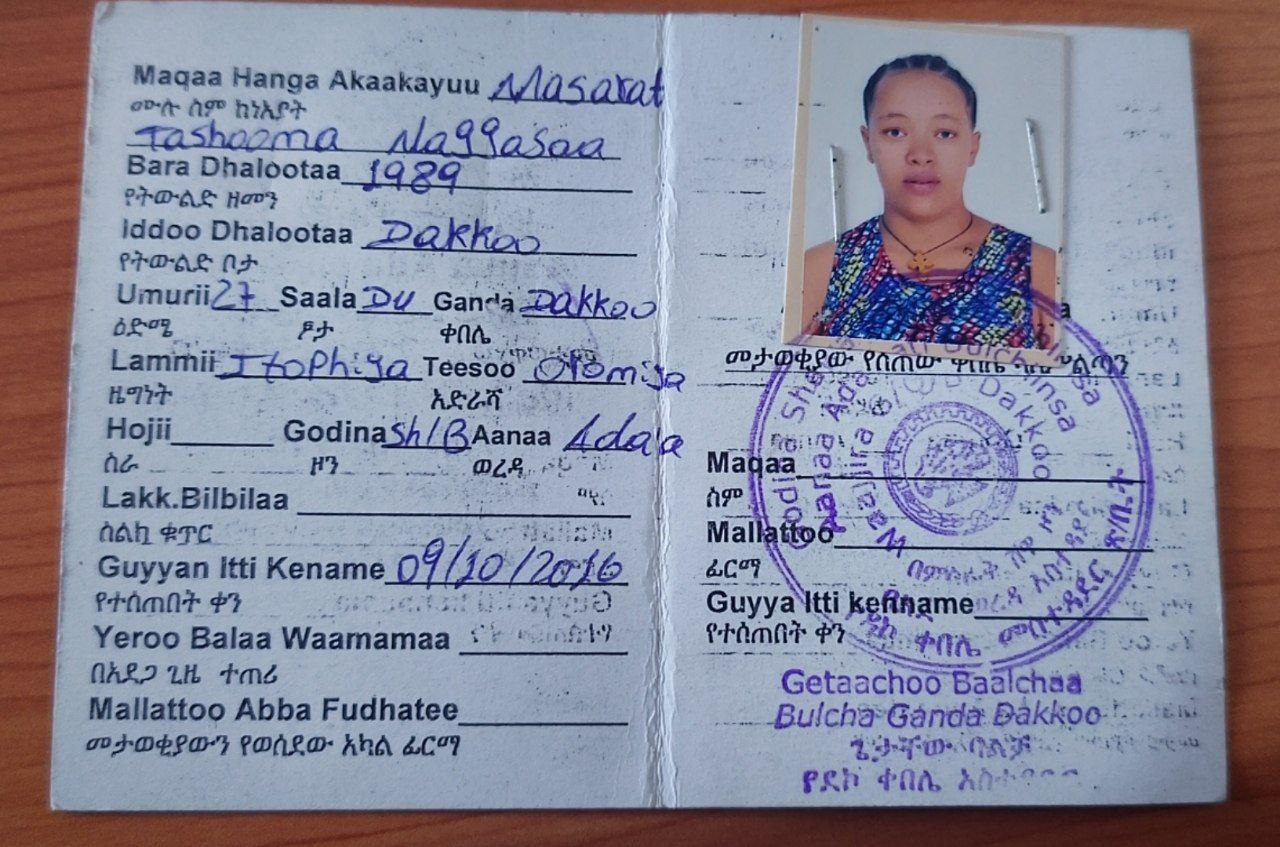 Maqaa Hanga Akaakayuu Masarat
ሙሉ ስም ከነአያት
Tashooma Naggasaa
Bara Dhalootaa 1989
የትውልድ ዘመን
Iddoo Dhalootaa Dakkoo
የትውልድ ቦታ
Umurii 27 Saala DU Ganda Dakkoo
ዕድሜ ፆታ ቀበሌ
Lammii Itophiya Teesoo Oromiya
ዜግነት አድራሻ
Hojii Godina Sh/B Aanaa Adaa
ስራ ዞን ወረዳ
Lakk.Bilbilaa
ስልክ ቁጥር
Guyyan Itti Kename 09/10/2016
የተሰጠበት ቀን
Yeroo Balaa Waamamaa
በአደጋ ጊዜ ተጠሪ
Mallattoo Abba Fudhatee
መታወቂያውን የወሰደው አካል ፊርማ
መታወቂያው የሰጠው
Maqaa
ስም
Mallattoo
ፊርማ
Guyya Itti kenname
የተሰጠበት ቀን
Dakkoo
ቀበሌ
Getaachoo Baalchaa
Bulcha Ganda Dakkoo
ጌታቸው ባልቻ
የደኮ ቀበሌ